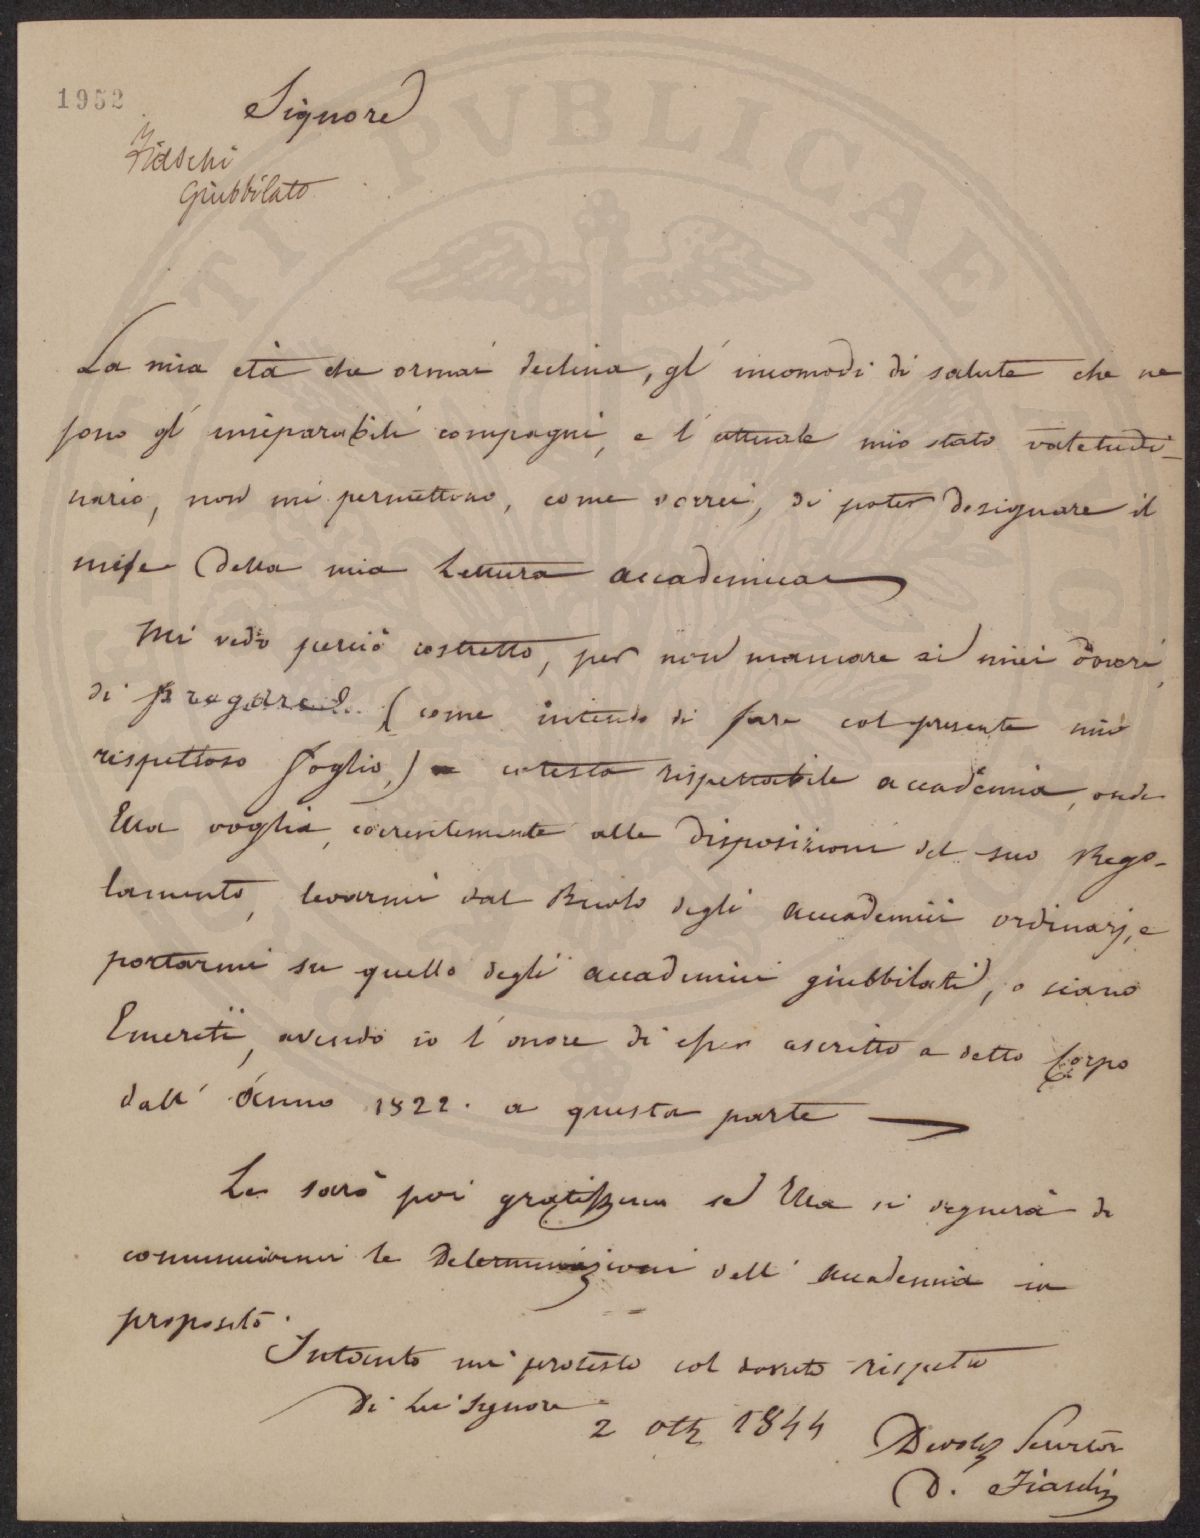 1952
Signore
Fiaschi
Giubbilato
La mia età che ormai declina, gl' incomodi di salute che ne
sono gl' inseparabili compagni, e l' attuale mio stato valetudi-
nario, non mi permettono, come vorrei, di poter designare il
mese della mia Lettura accademica
Mi vedo perciò costretto, per non mancare ai miei doveri,
di pregare (come intendo di fare col presente mio
rispettoso foglio,) cotesta rispettabile accademia, onde
Ella voglia, coerentemente alle disposizioni del suo Rego-
lamento, levarmi dal Ruolo degli Accademici ordinarj, e
portarmi su quello degli accademici giubbilati, o siano
Emeriti, avendo io l' onore di esser ascritto a detto Corpo
dall' Anno 1822. a questa parte
Le sarò poi gratissimo se Ella si degnerà di
comunicarmi le Determinazioni dell' Accademia in
proposito.
Intanto mi protesto col dovuto rispetto
Di Lei Signore
2 Ott 1844
Devot Servitor
D. Fiaschi
PVBLICAE